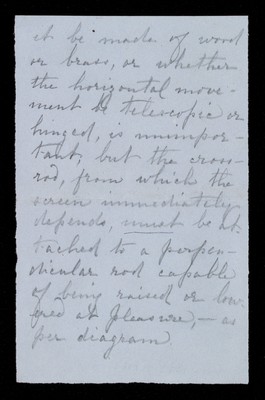 it be made of wood
or brass, or whether
the horizontal move-
ment be telescopic or
hinged, is unimpor-
tant, but the cross-
rod, from which the
screen immediately
depends, must be at-
tached to a perpen-
dicular rod capable
of being raised or low-
ered at pleasure,— as
per diagram.